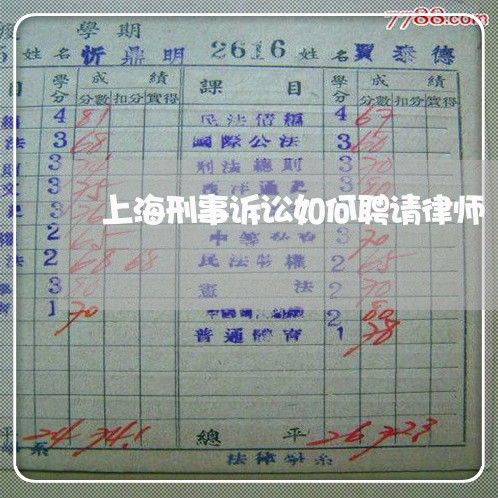 7788.com
學期
姓名 忻鼎明 2616 姓名 賈泰德
目 學分 成績 課目 學分 成績
分數 扣分 實得 分數 扣分 實得
4 81 民法債編 4 67
法 3 68 國際公法 3 60
3 刑法總則 3 70
3 75 西洋通史 3 80
上海刑事诉讼如何聘请律师
2 65 3 70
法 2 68 68 民法物權 2 65
3 80 憲法 2 70
1 70 2 80
普通體育 1 78
平 24 74.1 總平 26 72.3
系 法律學系